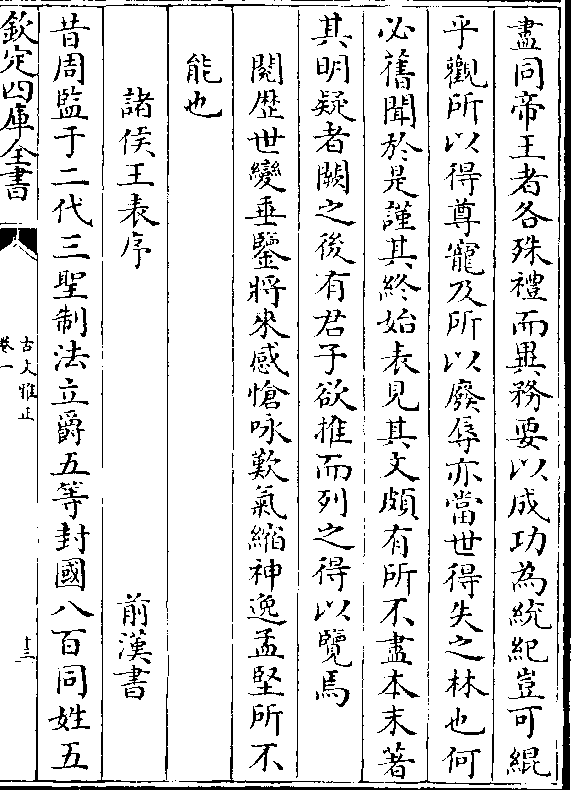 盡同帝王者各殊禮而異務要以成功為統紀豈可緄
乎觀所以得尊寵及所以廢辱亦當世得失之林也何
必舊聞於是謹其終始表見其文頗有所不盡本末著
其明疑者闕之後有君子欲推而列之得以覽焉
閱歴世變垂鑒將來感愴咏歎氣縮神逸孟堅所不
能也
諸侯王表序　前漢書
昔周監于二代三聖制法立爵五等封國八百同姓五
欽定四庫全書
古文雅正
卷一
十三